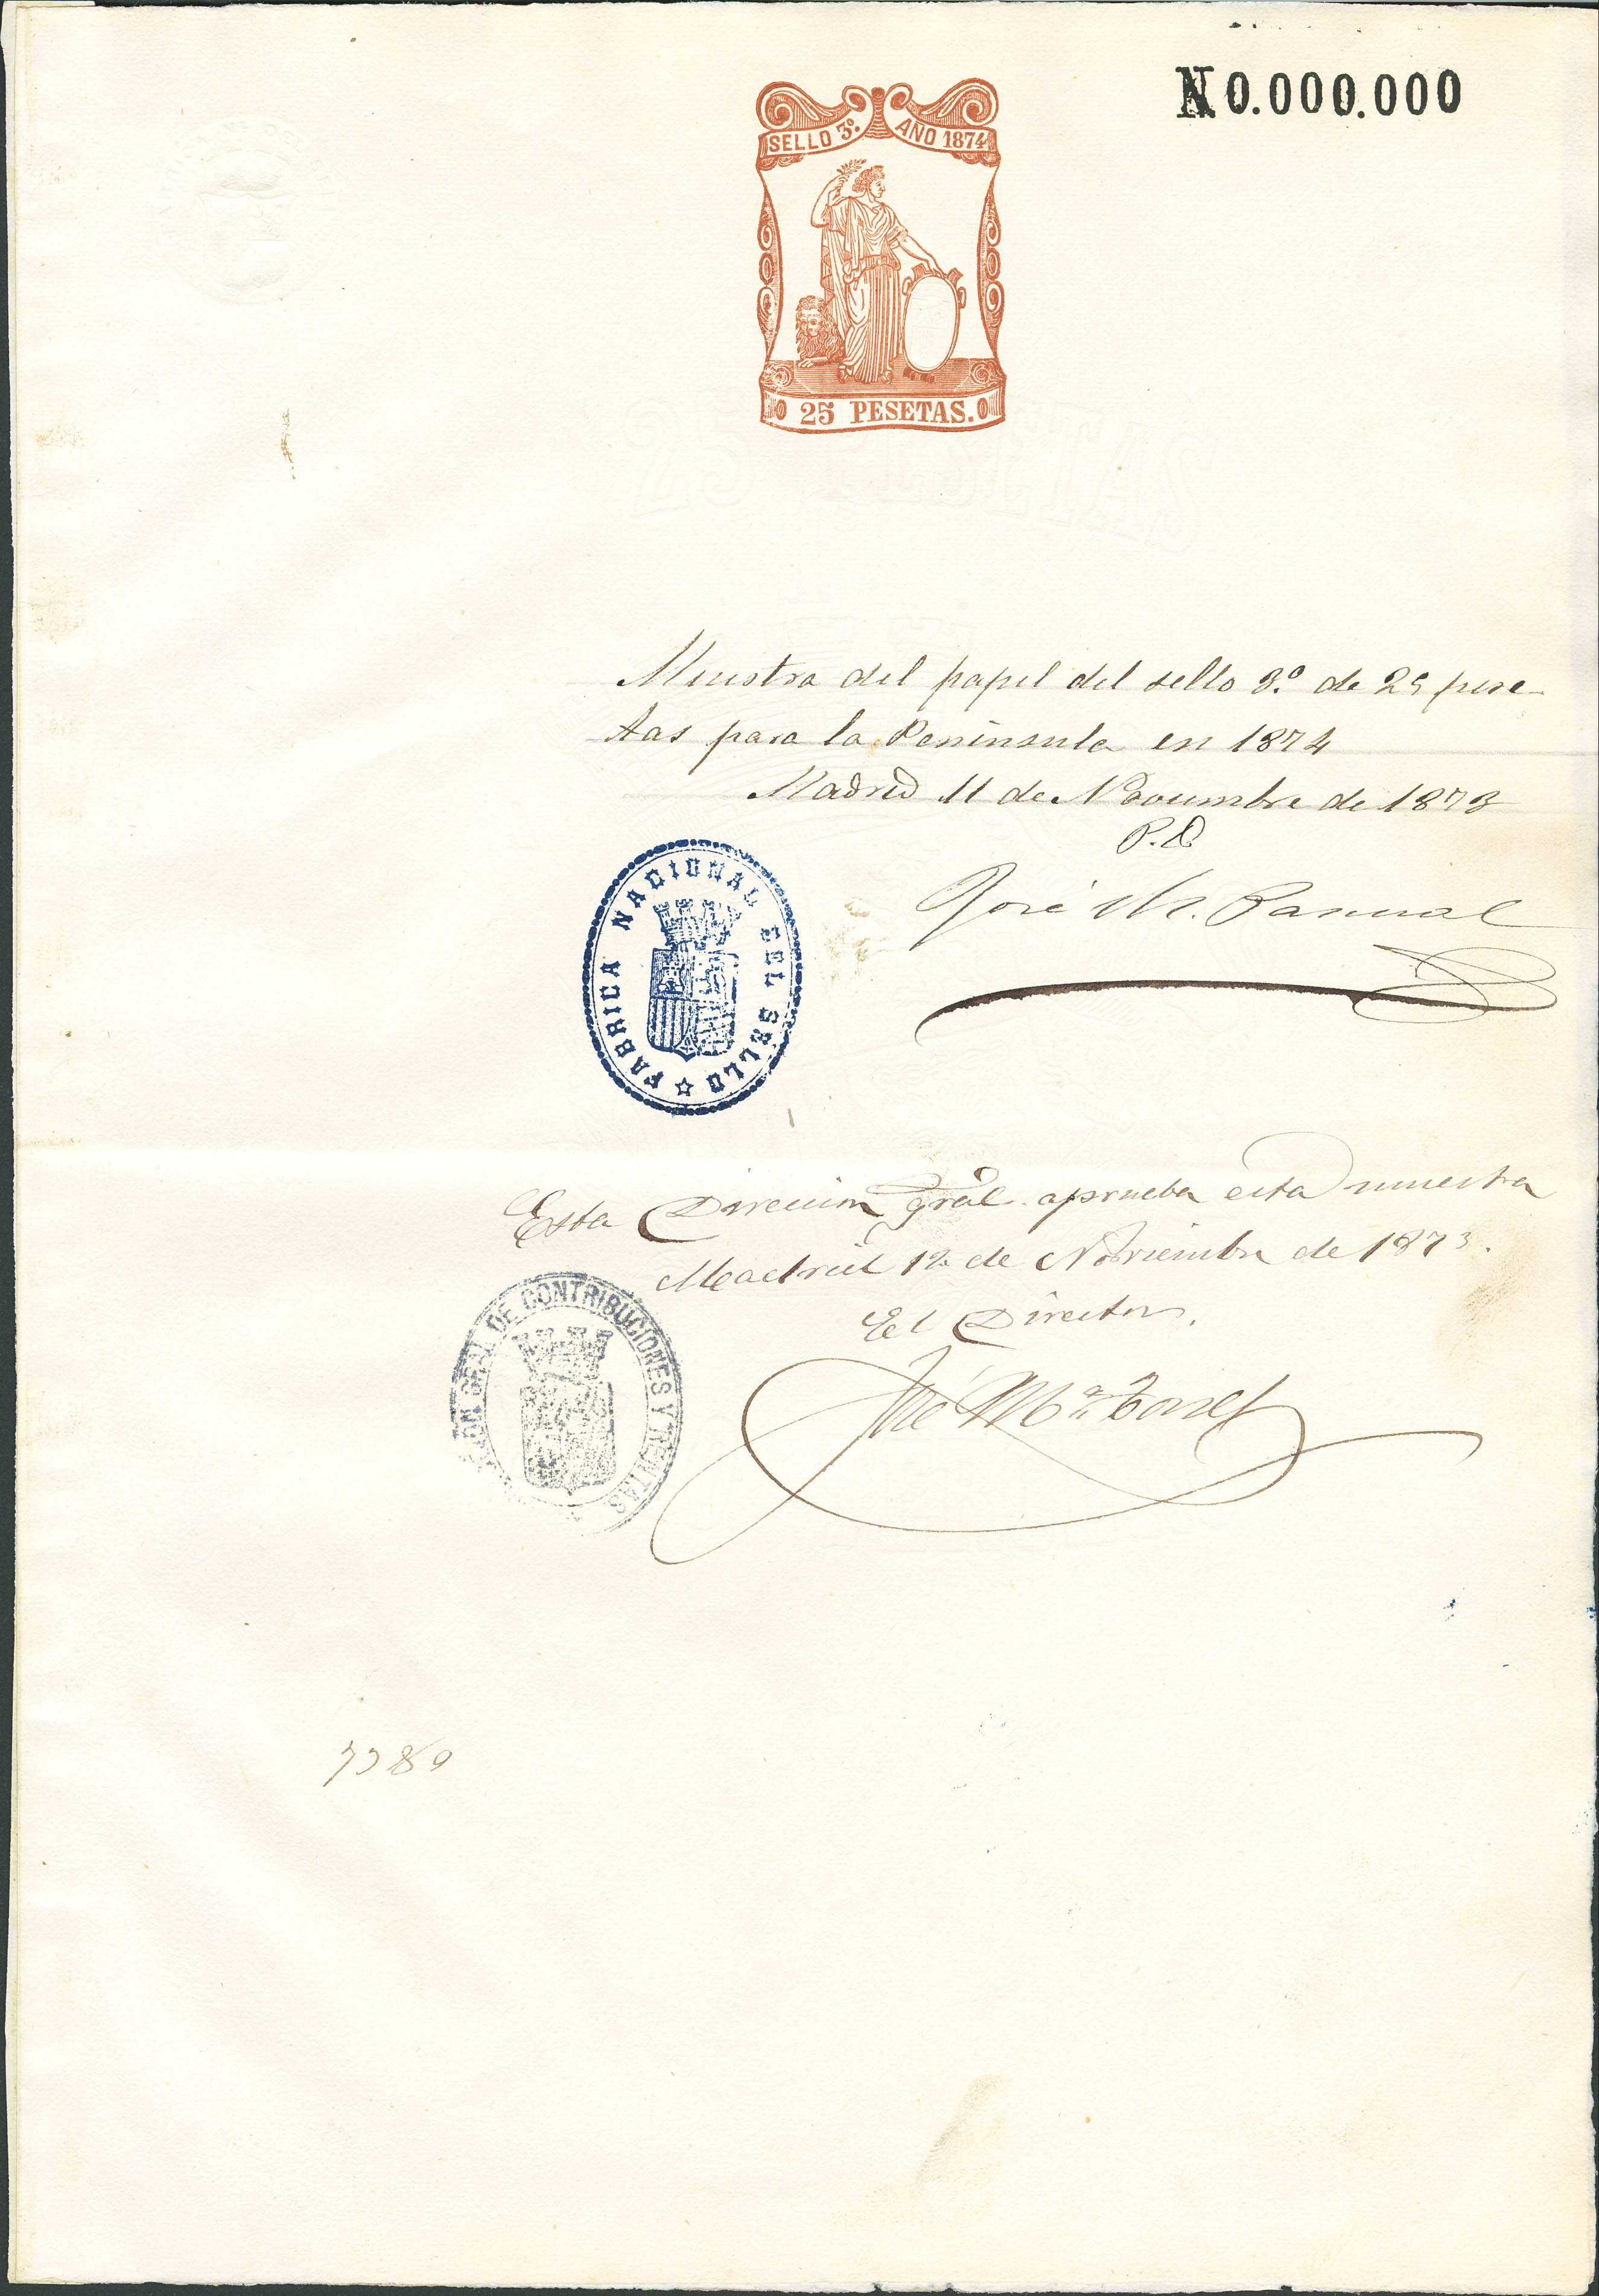 N 0.000.000
SELLO 3º. AÑO 1874
25 PESETAS.
Muestra del papel del sello 3.º de 25 pese-
tas para la Peninsula en 1874
Madrid 11 de Noviembre de 1873
José M. Pascual
FABRICA NACIONAL DEL SELLO
Esta Direccion gral. aprueba esta muestra
Madrid 12 de Noviembre de 1873.
El Director,
José Mª
GRAL DE CONTRIBUCIONES Y RENTAS